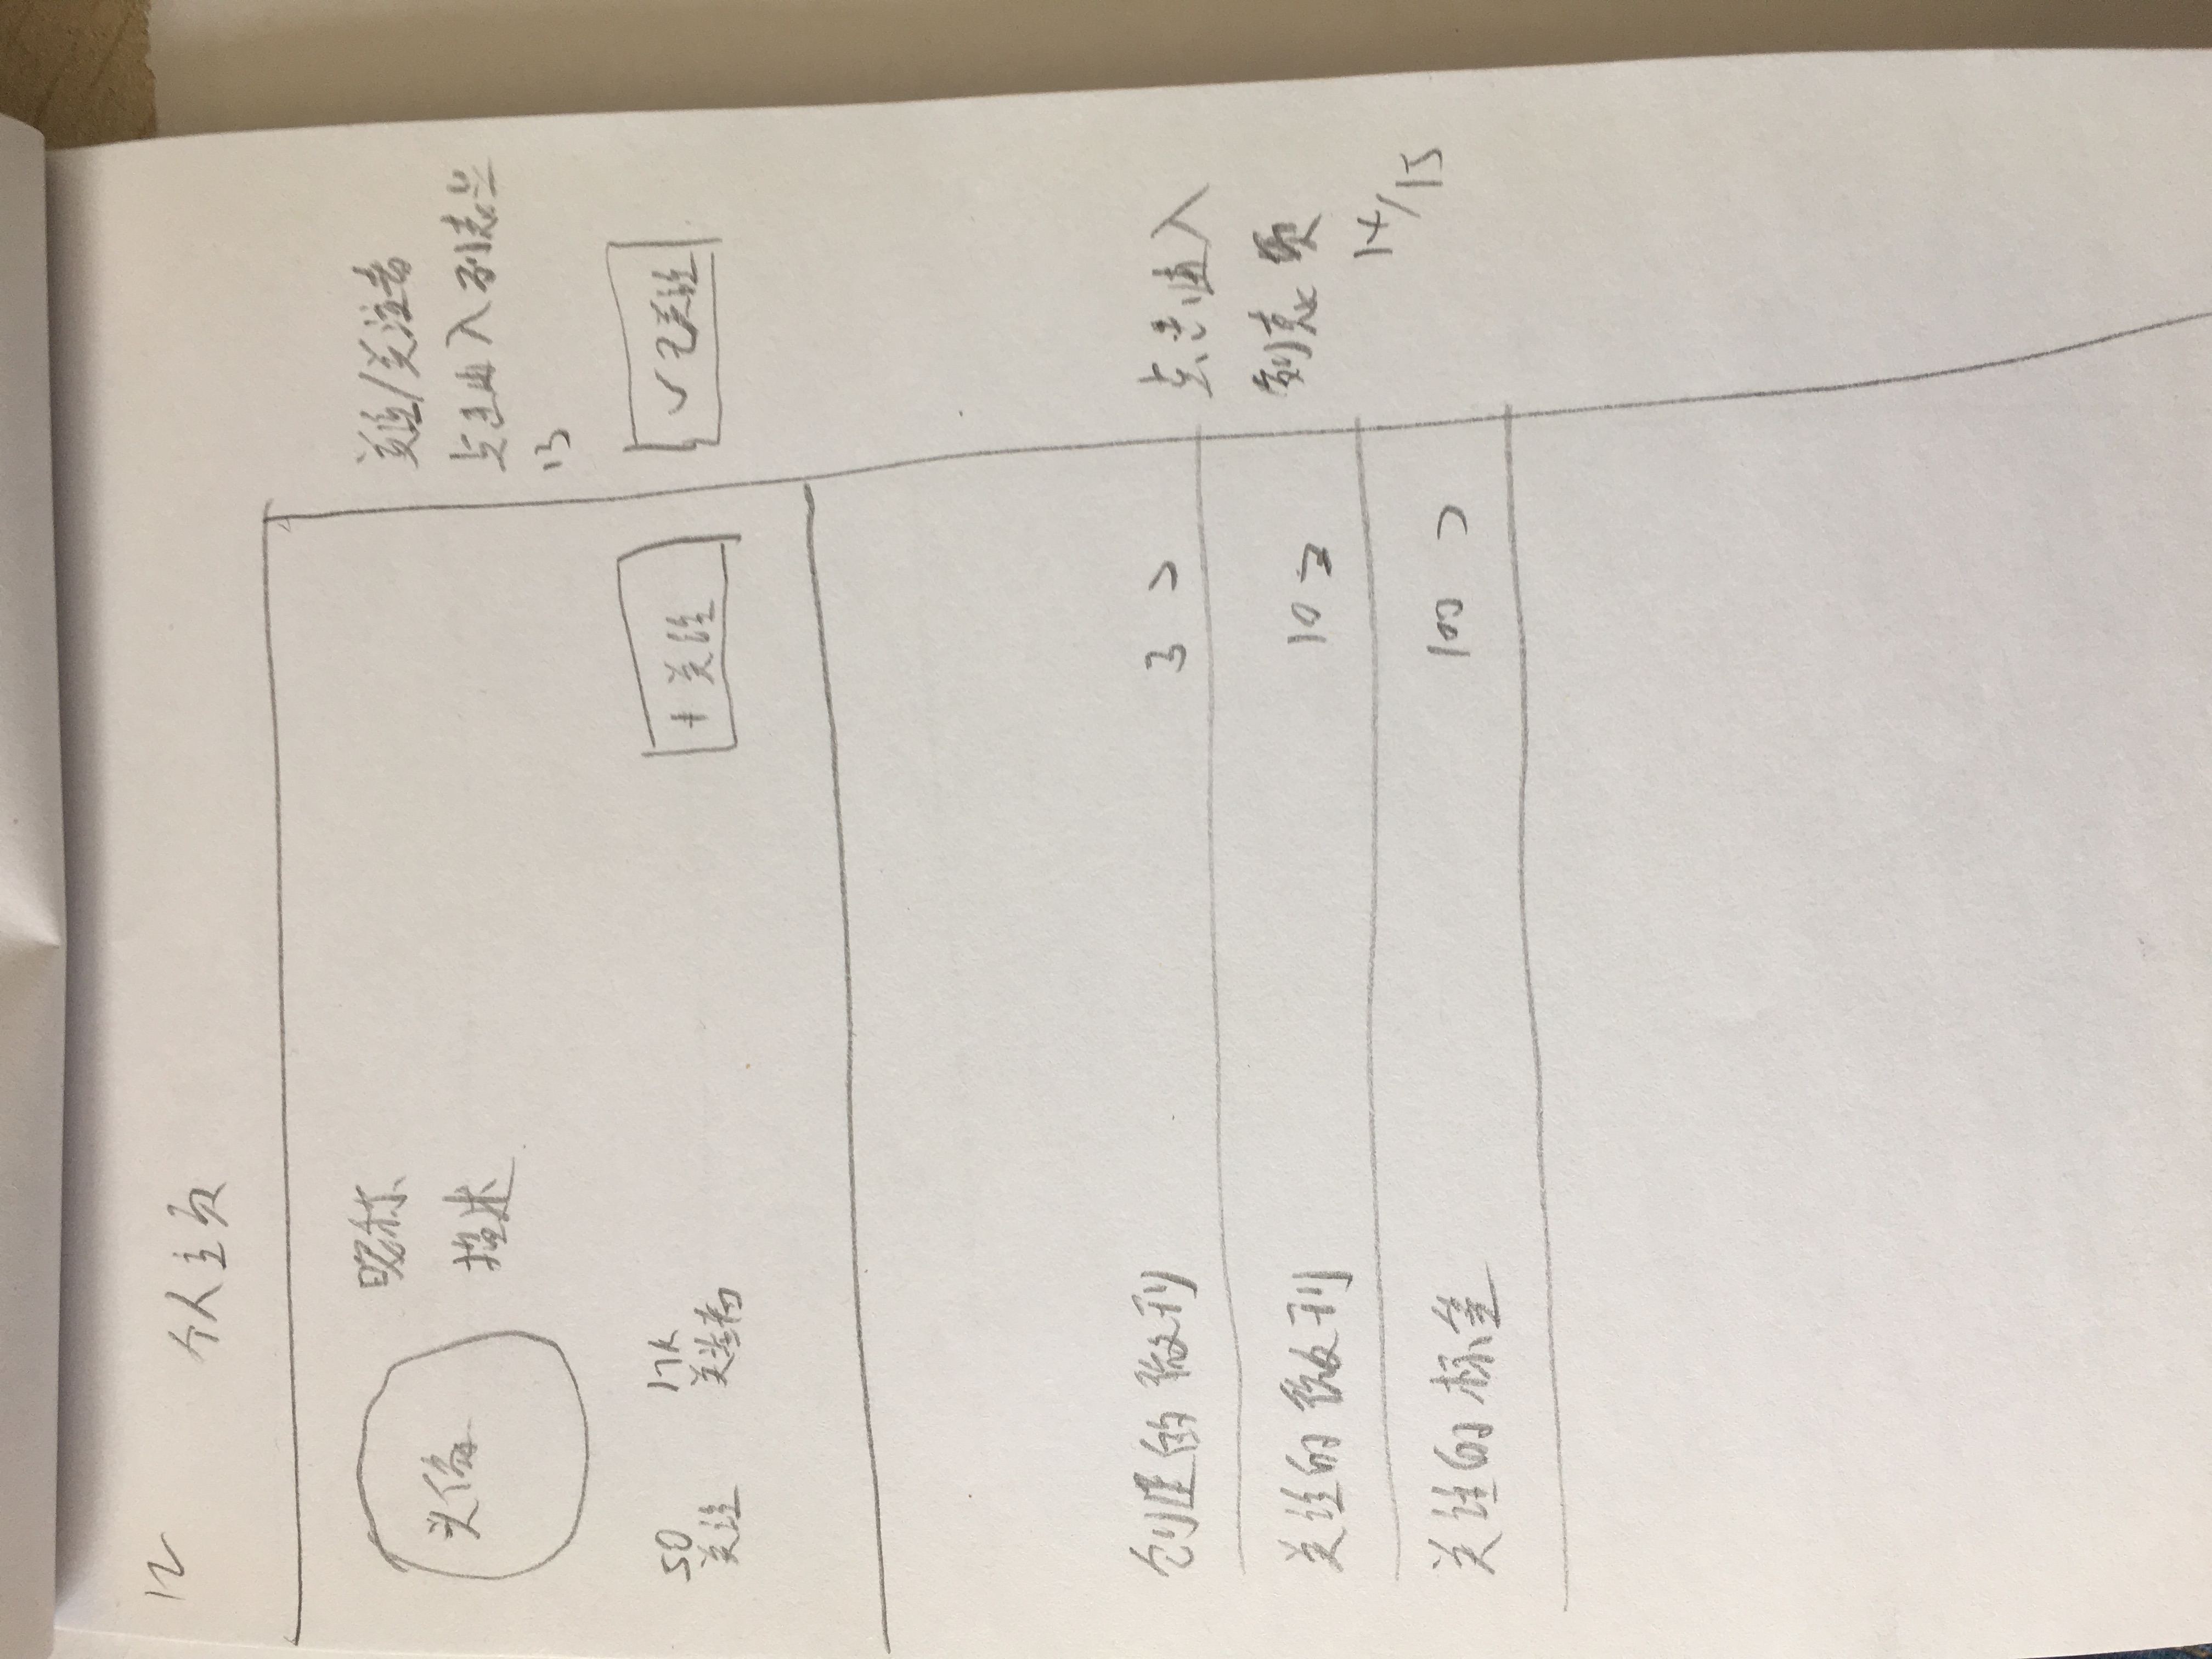 12
个人主页
头像
昵称
描述
50
关注
17k
关注者
+ 关注
关注/关注者
点击进入列表
13
✓已关注
创建的微刊 3 >
关注的微刊 10 >
关注的标签 100 >
点击进入
列表页
14/15